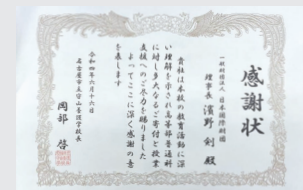 感謝状
一般財団法人 日本国際財団
理事長 濱野 剣 殿
貴社は本校の教育活動に深
い理解を示され高等部普通科
に対し多大なるご寄付と授業
支援へのご尽力を賜りました
よってここに深く感謝の意
を表します
令和四年六月十六日
名古屋市立守山養護学校長
岡部 啓